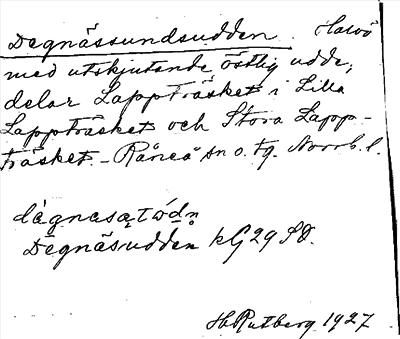 Degnässundsudden. Halvö
med utskjutande östlig udde,
delar Lappträsket i Lilla
Lappträsket och Stora Lapp-
träsket. - Råneå sn o. tg. Norrb. l.
Degnäsudden kG29SO.
H. Rutberg 1927